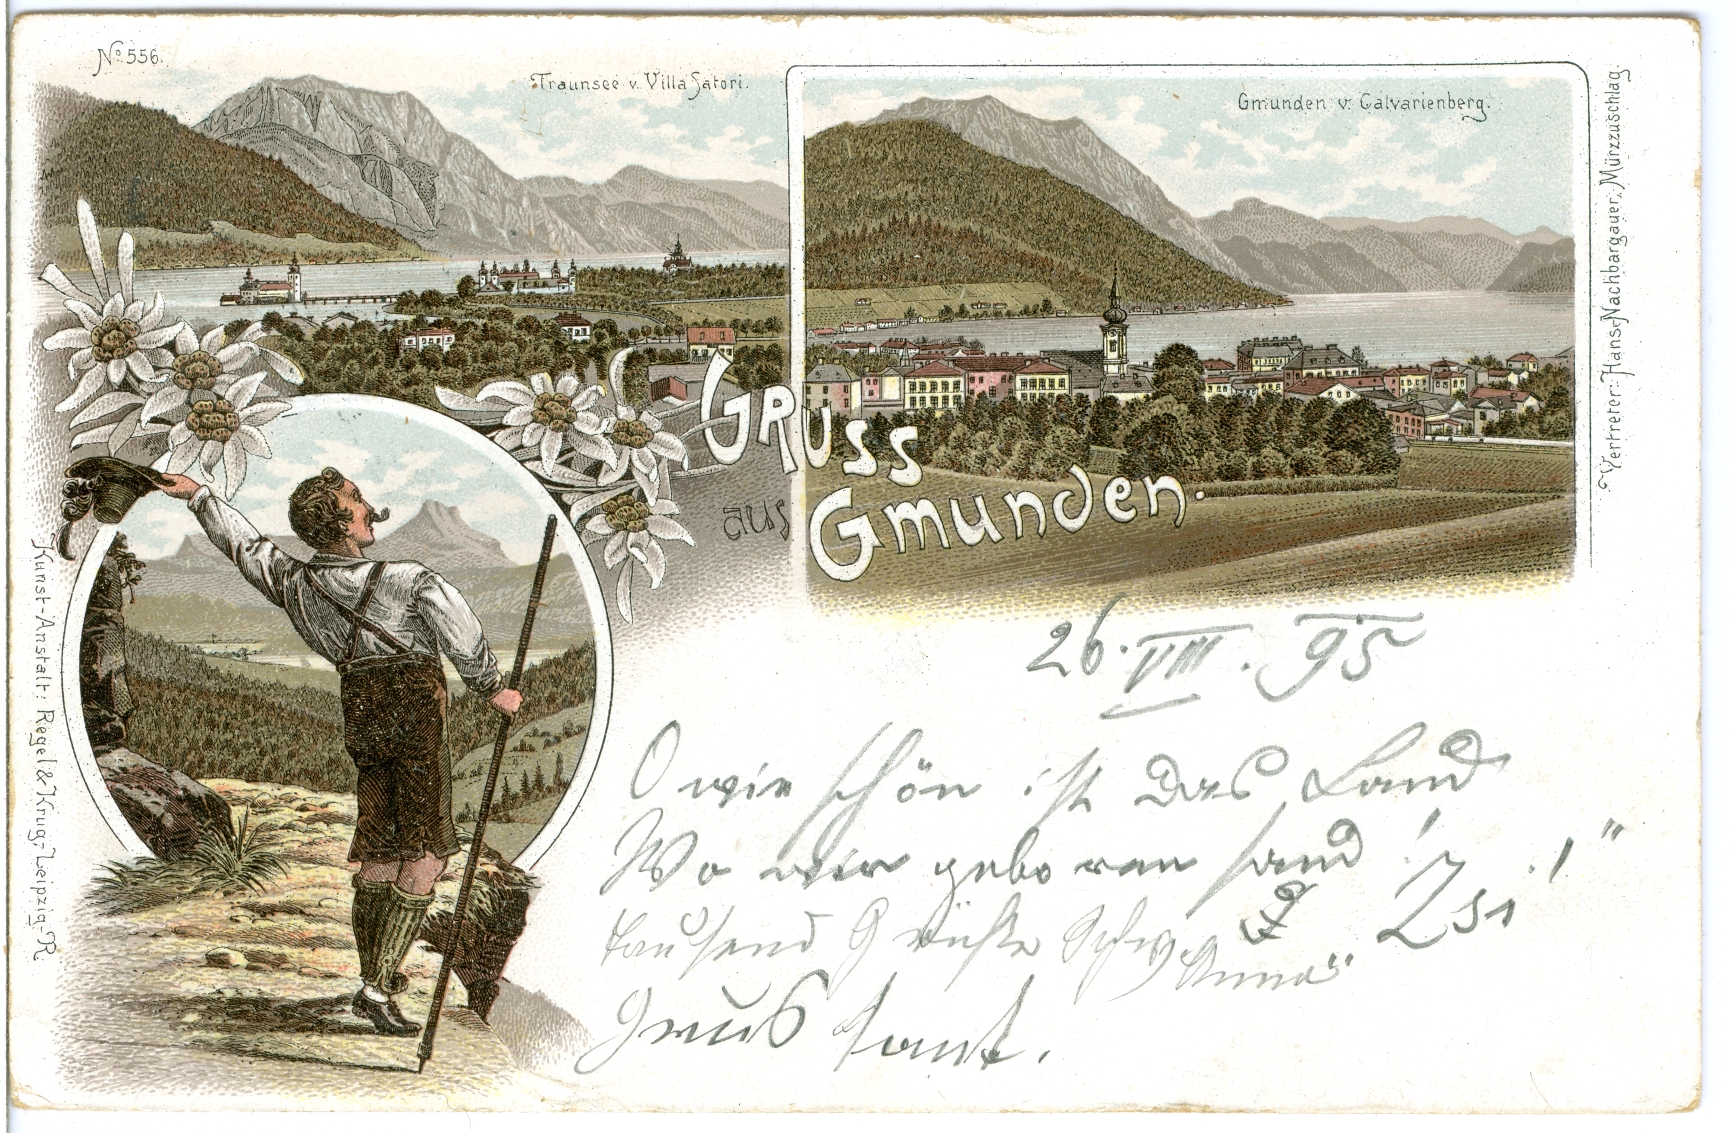 No 556.
Traunsee v. Villa Satori.
Gmunden v. Calvarienberg.
Vertreter: Hans Nachbargauer, Mürzzuschlag.
GRUSS
aus
Gmunden.
Kunst-Anstalt: Regel & Krug, Leipzig-R
26. VIII. 95
O wie schön ist das Land
Wo wir geboren sand!
tausend Grüße
Anna"